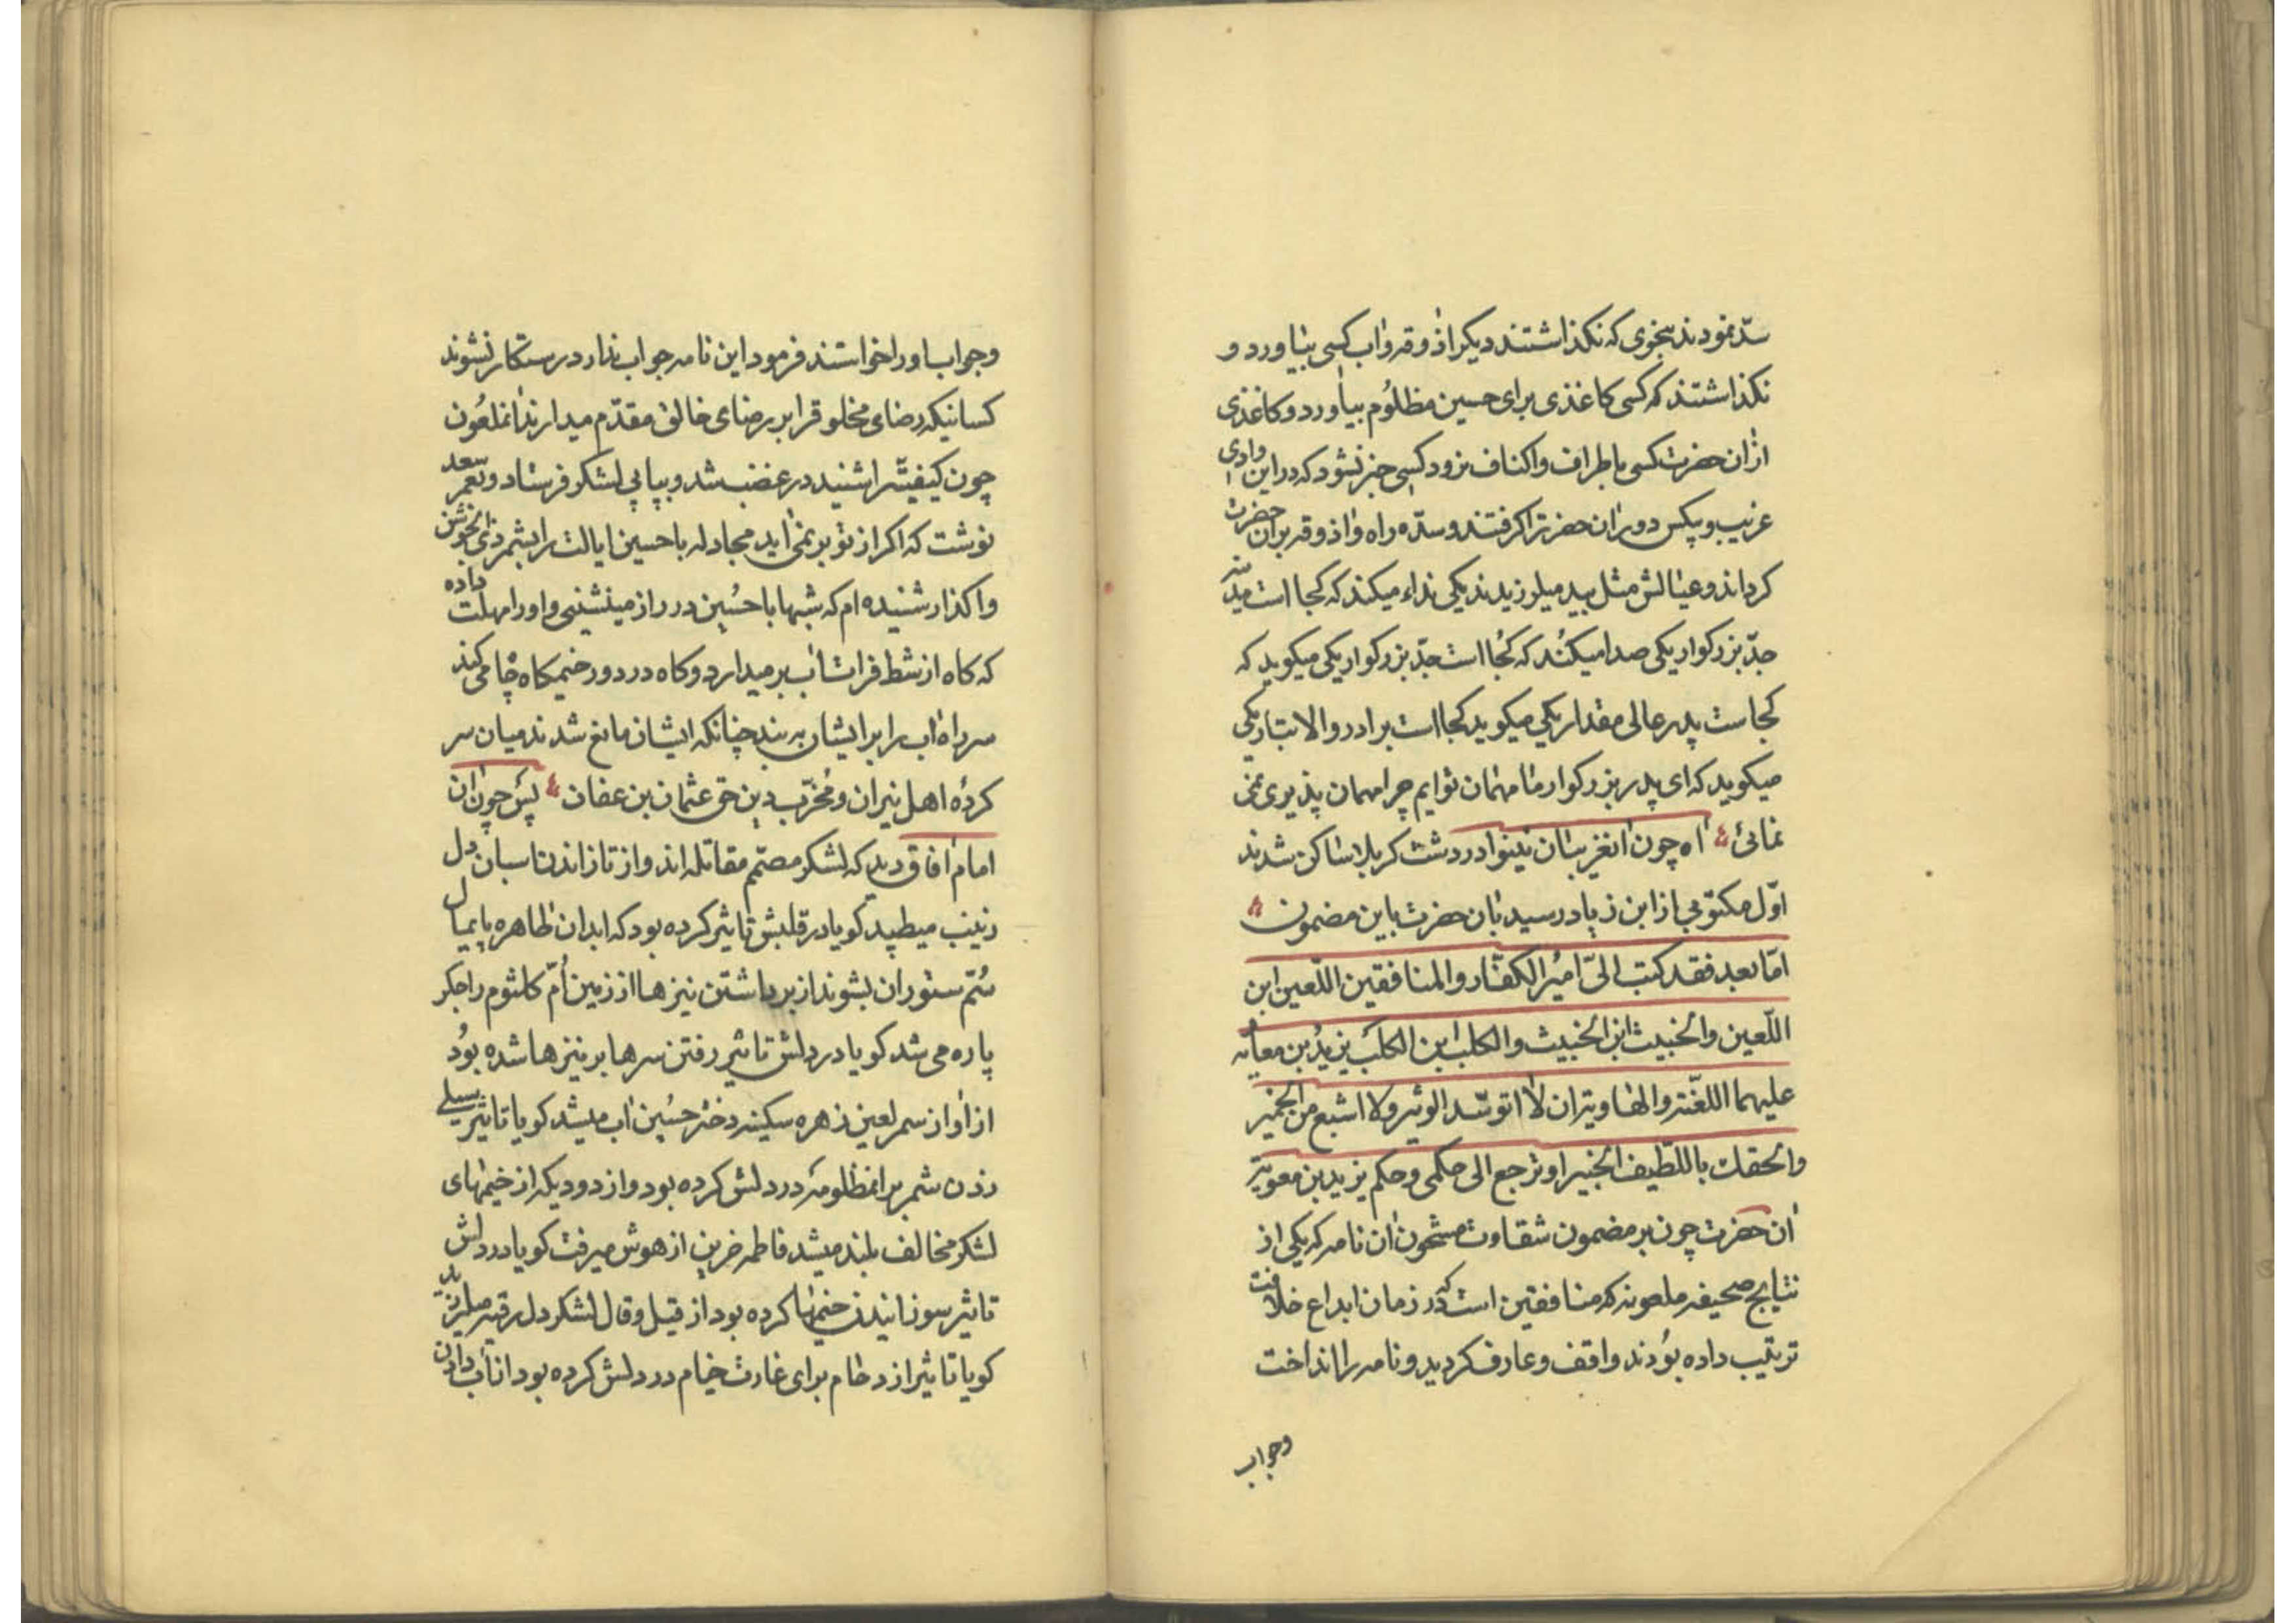 سدّ نمودند بنحوی که نکذاشتند دیکر اذوقه واب کسی بیاورد و
نکذاشتند که کسی کاغذی برای حسین مظلوُم بیاورد و کاغذی
ازان حضرت کسی باطراف واکناف نرود کسی خبر نشود که دراین وادی
غریب وبیکس دوران حضرترا کرفتند وسدّ ه راه واذوقه بران حضرت
کرداند وعیالش مثل بید میلرزیدند یکی نداء میکند که کجا است
جدّ بزرکوار یکی صدا میکُند که کُجا است جدّ بزرکوار یکی میکوید که
کجاست پدر عالی مقدار یکی میکوید کجا است برادر والاتبار یکی
میکوید که ای پدر بزرکوار ما مهمان توایم چرا مهمان پذیری نمی
نمائی اه چون انغریبان نینوا در دشت کربلا ساکن شدند
اوّل مکتوبی از ابن زیاد رسید بان حضرت باین مضمون
امّا بعد فقد کتب الیّ امیرُ الکفّار والمنافقین اللّعین ابن
اللّعین والخبیث ابن الخبیث والکلب ابن الکلب یزیدُ بن معاویه
علیهما اللعّنة والهاویة ان لا اتوسّد الوثیر ولا اشبع من الخمیر
والحقك باللّطیف الخبیر او ترجع الی حکمی وحکم یزید بن معویة
ان حضرت چون بر مضمون شقاوت مشحون ان نامه که یکی از
نتایج صحیفه ملعونه که منافقین است که در زمان ابداع خلافت
ترتیب داده بوُدند واقف وعارف کردید و نامه را انداخت
وجواب
وجواب اورا خواستند فرمود این نامه جواب ندارد رستکار نشوند
کسانیکه رضای مخلوقرا بر رضای خالق مقدّم میدارند انملعوُن
چون کیفیّترا شنید در غضب شد و پیاپی لشکر فرستاد وبعمر سعد
نوشت که اکر از تو بر نمی اید مجادله با حسین ایالت را بشمر ذی الجوشن
واکذار شنیده ام که شبها با حسُین در راز مینشینی واورا مهلت داده
که کاه از شط فرات اب بر میدارد و کاه در دور خیمکاه چاه می کند
سر راه اب را بر ایشان به بند چنانکه ایشان مانع شدند میان سر
کردهٔ اهل نیران ومُخرّب دین حق عثمان بن عفان پس چون ان
امام افاق دید که لشکر مصمّم مقاتله اند واز تاز اندن اسبان دل
زینب میطپید کویا در قلبش تاثیر کرده بود که ابدان طاهره پایمال
سُمّ ستوران بشوند از برداشتن نیزها از زمین اُمّ کلثوم را جکر
پاره می شد کویا در دلش تاثیر رفتن سرها بر نیزها شده بوُد
از اواز سمر لعین زهره سکینه دختر حسُین اب میشد کویا تاثیر سیلی
زدن شمر بر انمظلومه در دلش کرده بود واز دود یکه از خیمهای
لشکر مخالف بلند میشد فاطمه حزین از هوش میرفت کویا در دلش
تاثیر سوزانیدن خیمها کرده بود از قیل وقال لشکر دل رقیه میلرزید
کویا تاثیر ازدحام برای غارت خیام در دلش کرده بود از تاب دادن